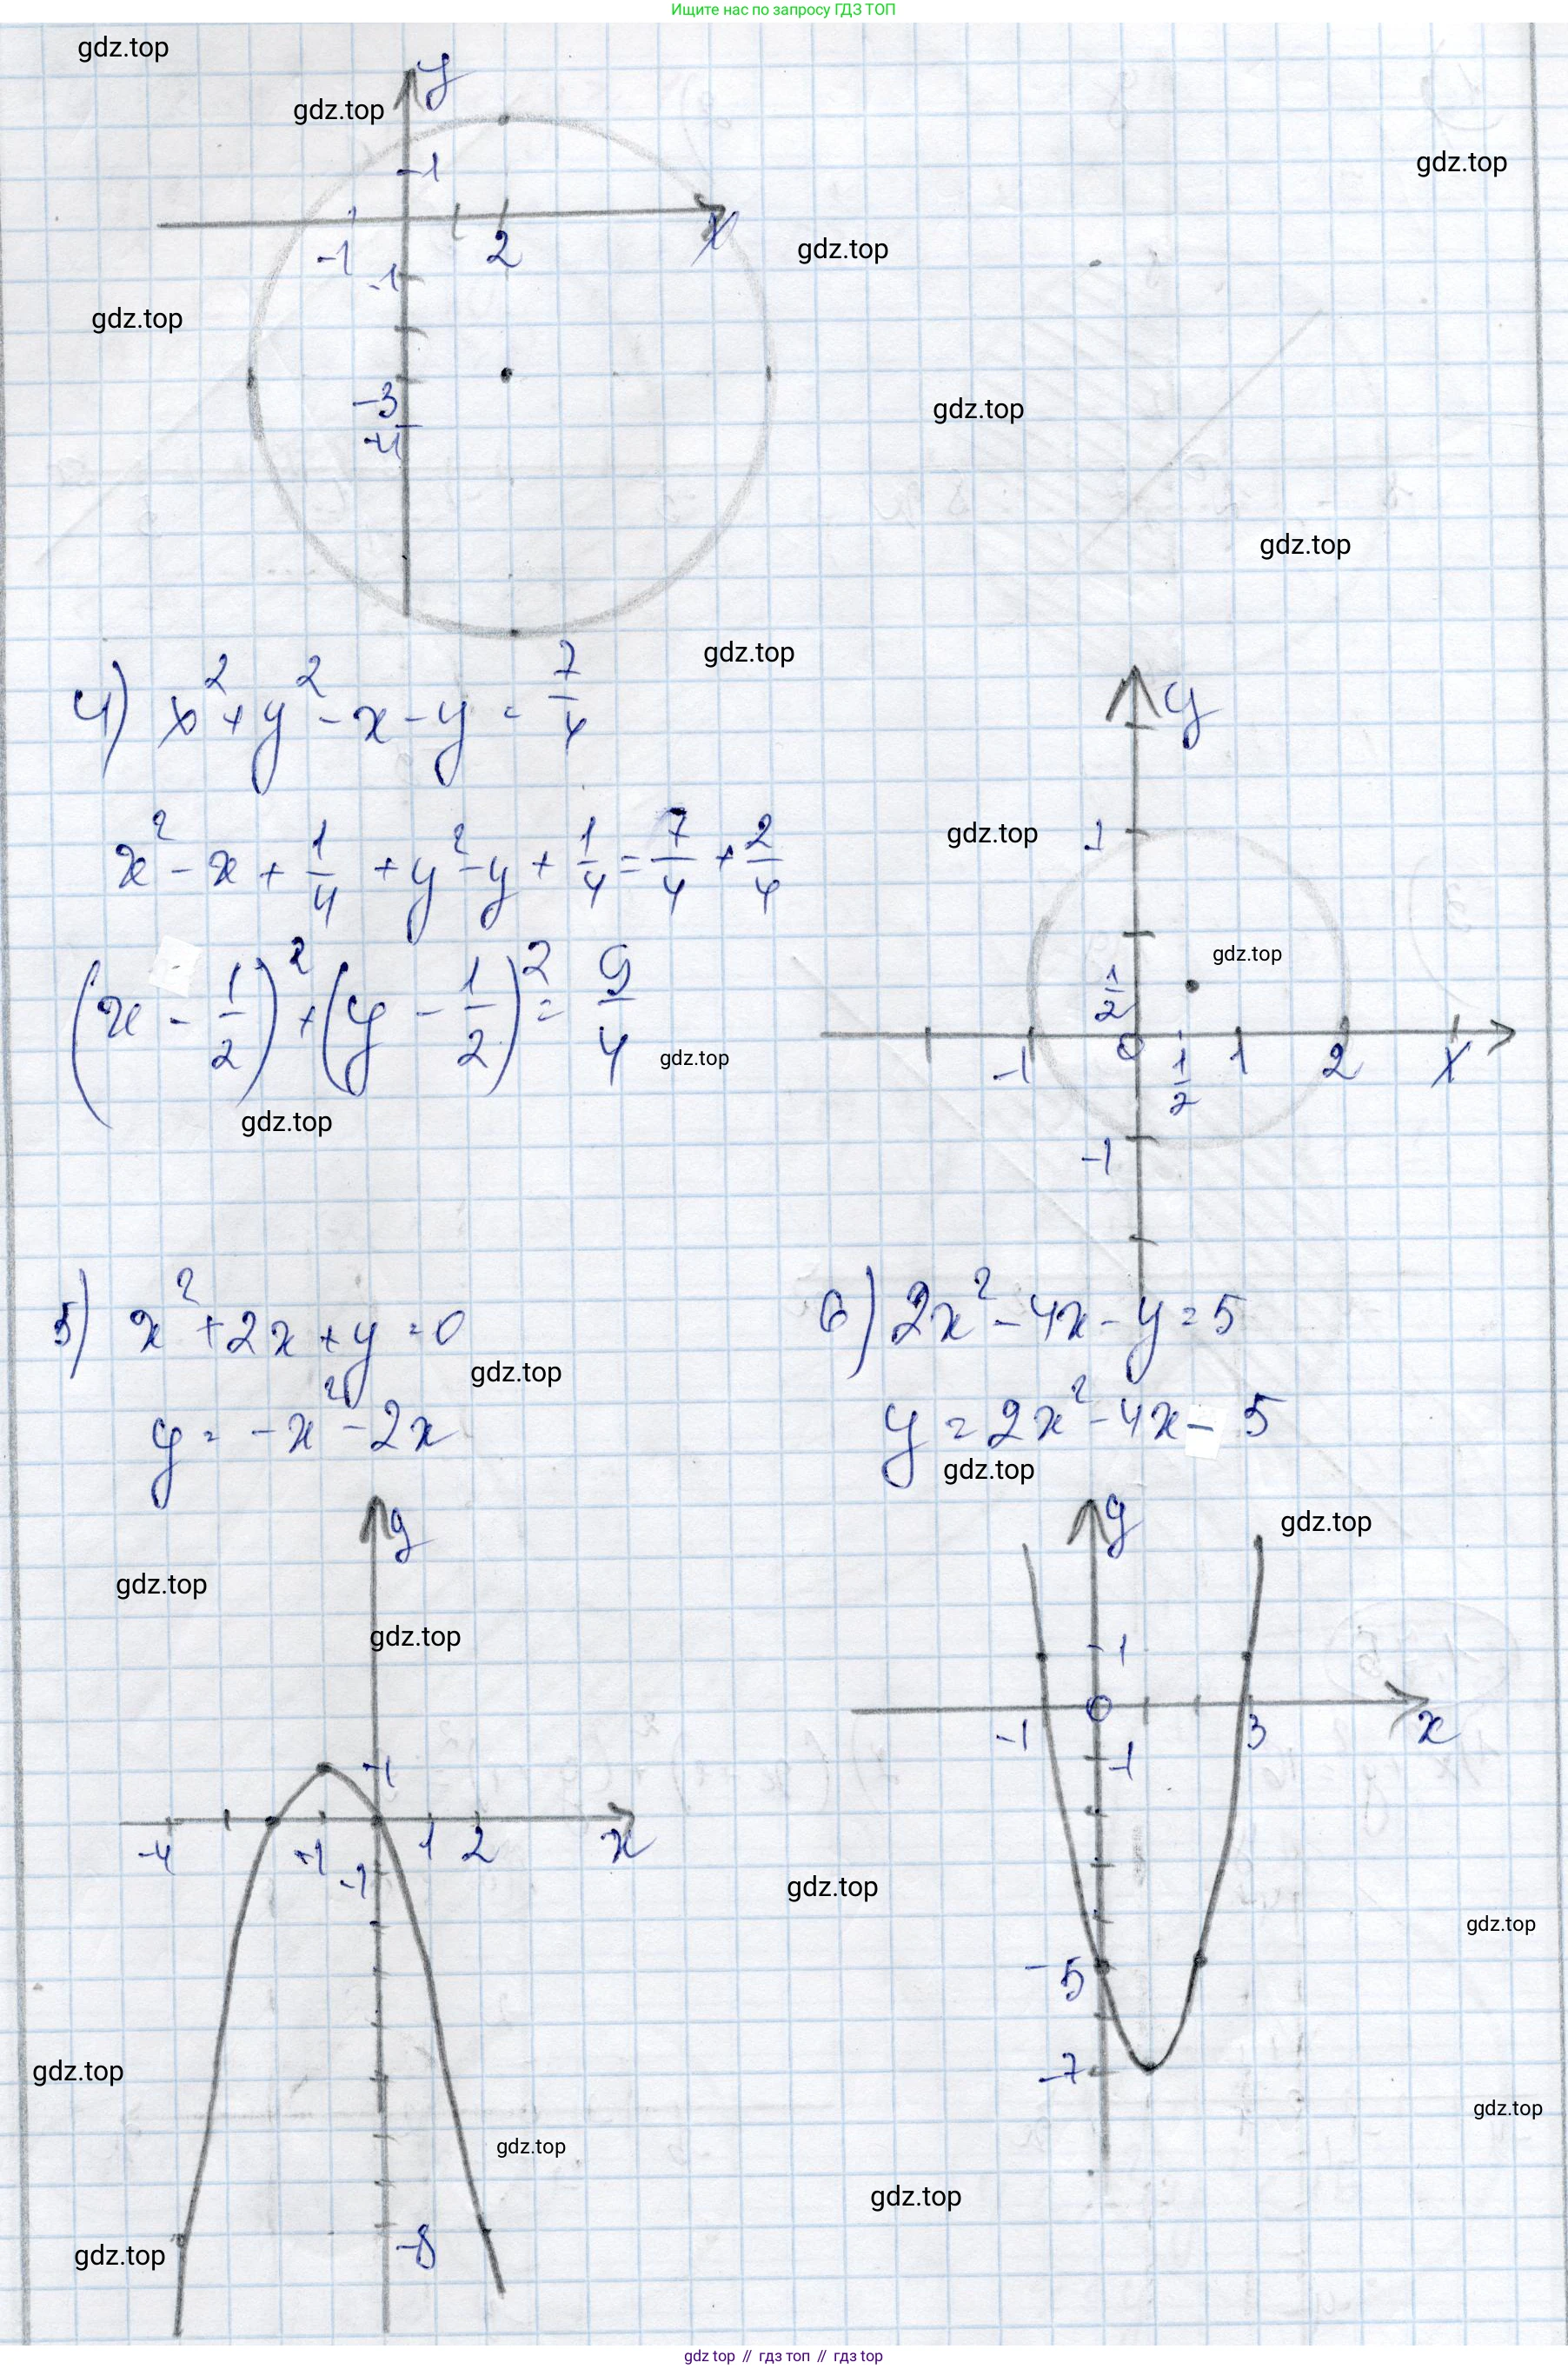 Ищите нас по запросу ГДЗ ТОП
gdz.top
y
gdz.top
1
gdz.top
x
-1
2
gdz.top
-1
gdz.top
-3
-4
gdz.top
gdz.top
gdz.top
4) x² + y² - x - y = 7/4
y
x² - x + 1/4 + y² - y + 1/4 = 7/4 + 2/4
gdz.top
1
(x - 1/2)² + (y - 1/2)² = 9/4
gdz.top
1/2
0
gdz.top
-1
1/2
1
2
x
gdz.top
-1
5) x² + 2x + y = 0
6) 2x² - 4x - y = 5
gdz.top
y = -x² - 2x
y = 2x² - 4x - 5
gdz.top
y
y
gdz.top
gdz.top
gdz.top
1
0
-1
3
x
1
-1
-4
-1
1
2
x
-1
gdz.top
gdz.top
-5
gdz.top
-7
gdz.top
gdz.top
gdz.top
-8
gdz.top
gdz top // гдз топ // гдз top